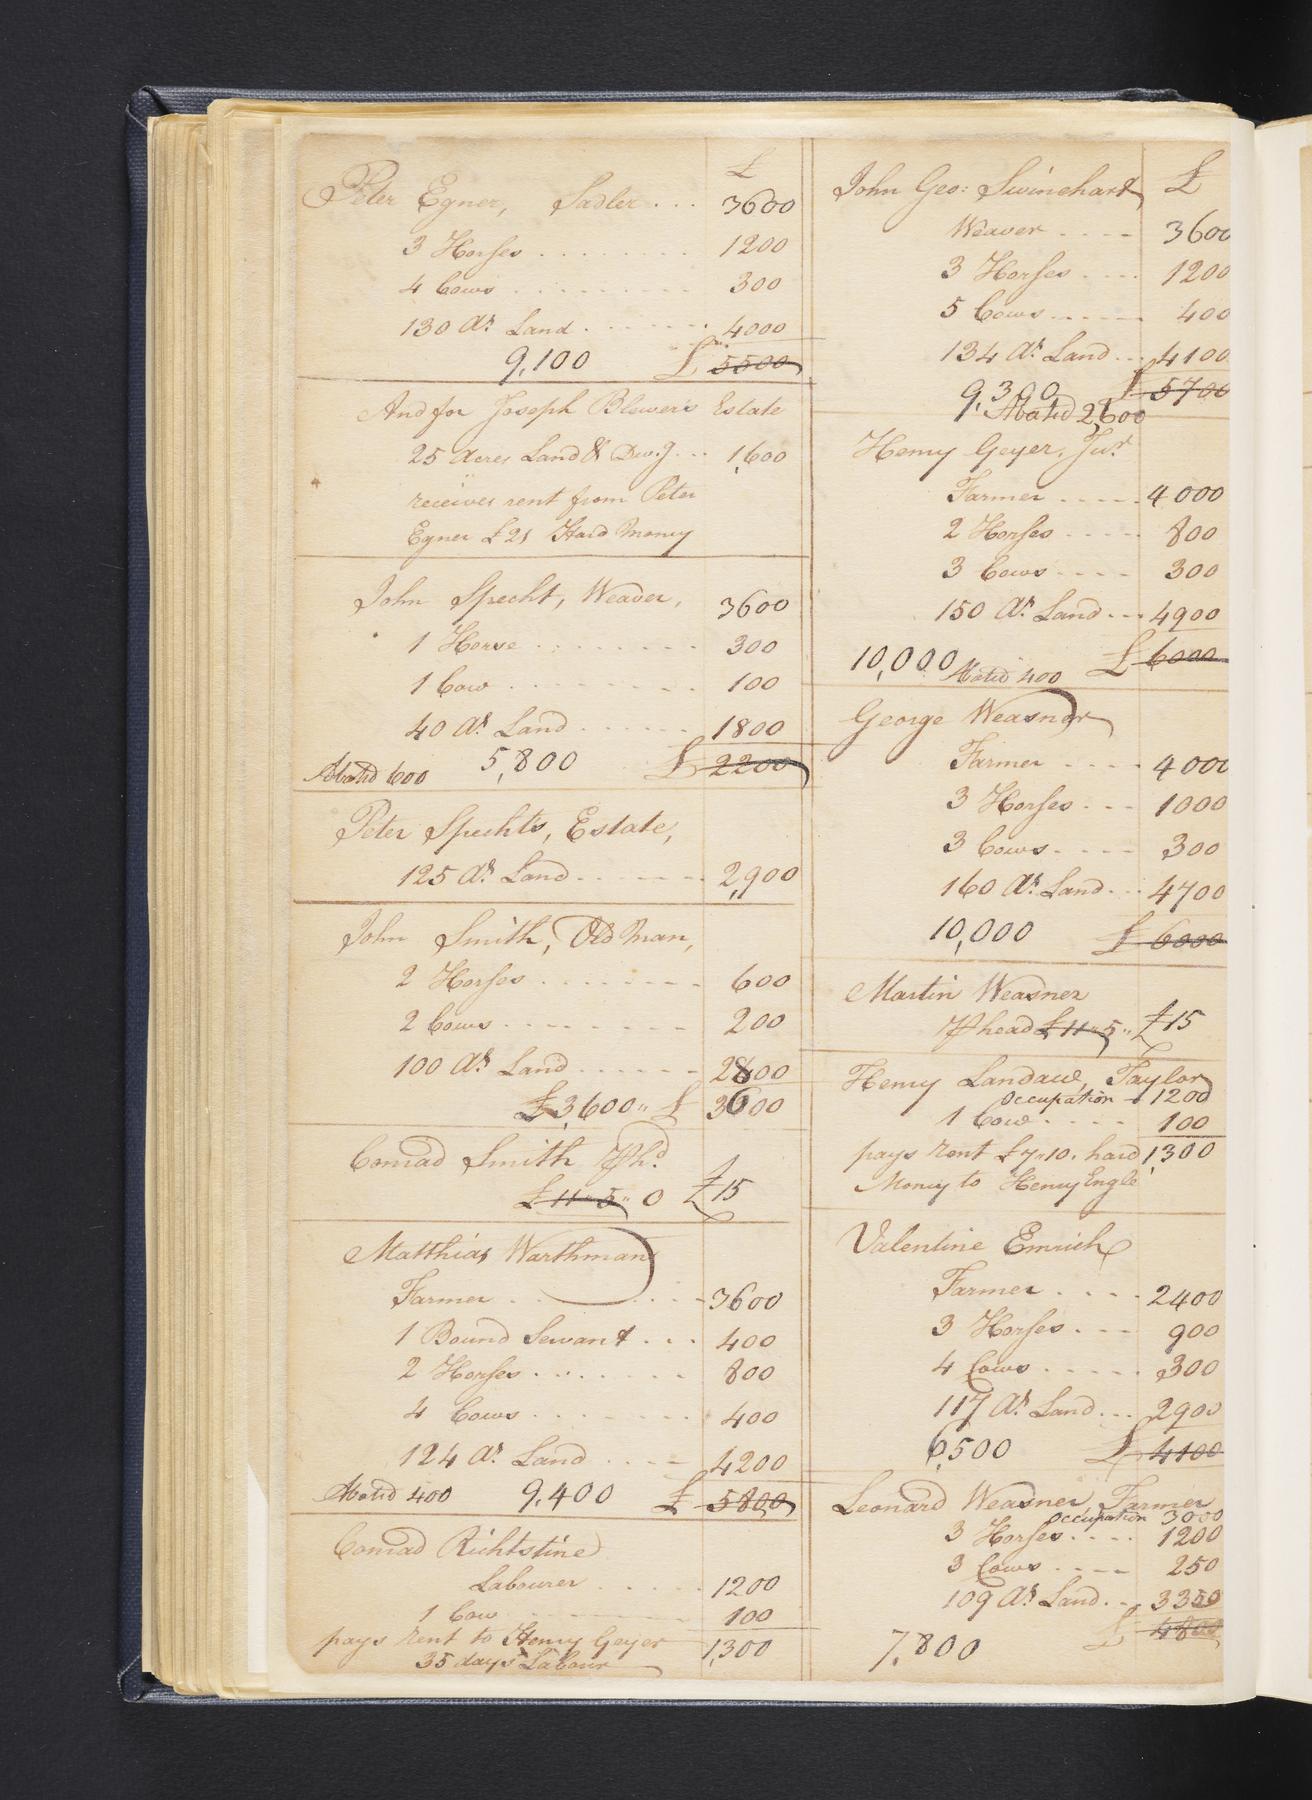 £
Peter Egner, Sadler ... 3600
3 Horses ........ 1200
4 Cows ........ 300
130 As. Land ...... 4000
9,100 £ 5500
And for Joseph Blewer's Estate
25 Acres Land & Dwg. ... 1,600
receives rent from Peter
Egner £21 Hard Money
John Specht, Weaver, 3600
1 Horse ........ 300
1 Cow ........ 100
40 As. Land ...... 1800
Abated 600 5,800 £ 2200
Peter Spechts, Estate,
125 As. Land ....... 2,900
John Smith, Old Man,
2 Horses ....... 600
2 Cows ....... 200
100 As. Land ...... 2800
£3,600,, £ 3600
Conrad Smith Pr. hd.
£ 11,, 5,, 0 £15
Matthias Warthman
Farmer ...... 3600
1 Bound Servant ... 400
2 Horses ...... 800
4 Cows ...... 400
124 As. Land .... 4200
Abated 400 9,400 £ 5800
Conrad Richtstine
Labourer ..... 1200
1 Cow ...... 100
pays rent to Henry Geyer 1,300
35 days Labour
John Geo: Swinehart £
Weaver .... 3600
3 Horses .... 1200
5 Cows ..... 400
134 As. Land ... 4100
9,300 £ 5700
Abated 2,600
Henry Geyer, Jur.
Farmer ..... 4000
2 Horses .... 800
3 Cows .... 300
150 As. Land ... 4900
10,000 Abated 400 £ 6000
George Weasner
Farmer .... 4000
3 Horses ... 1000
3 Cows .... 300
160 As. Land ... 4700
10,000 £ 6000
Martin Weasner
Pr. head £ 11,, 5,, £15
Henry Landaue, Taylor
Occupation - 1200
1 Cow .... 100
pays rent £7,,10. hard 1,300
Money to Henry Engle
Valentine Emrich
Farmer .... 2400
3 Horses ... 900
4 Cows ..... 300
117 As. Land ... 2900
6,500 £ 4100
Leonard Weasner, Farmer
Occupation 3000
3 Horses .... 1200
3 Cows .... 250
109 As. Land ... 3350
£ 4800
7,800